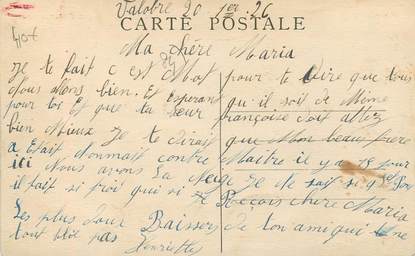 Valobre 20 1er 26
CARTE POSTALE
40f
Ma chère Maria
je te fait c est Mot pour te dire que tous
nous allons bien. Et Esperant qu'il soit de Même
pour toi Et que ta seur françoise soit allez
bien Mieux je te dirait que Mon beau frere
a Etait contre Maitre il y a 15 jour
ici Nous avons la neige je ne sait si
il fait si froit qui si je Reçois chere Maria
Les plus doux Baisser de ton amie qui ne
tout blié pas Henriette